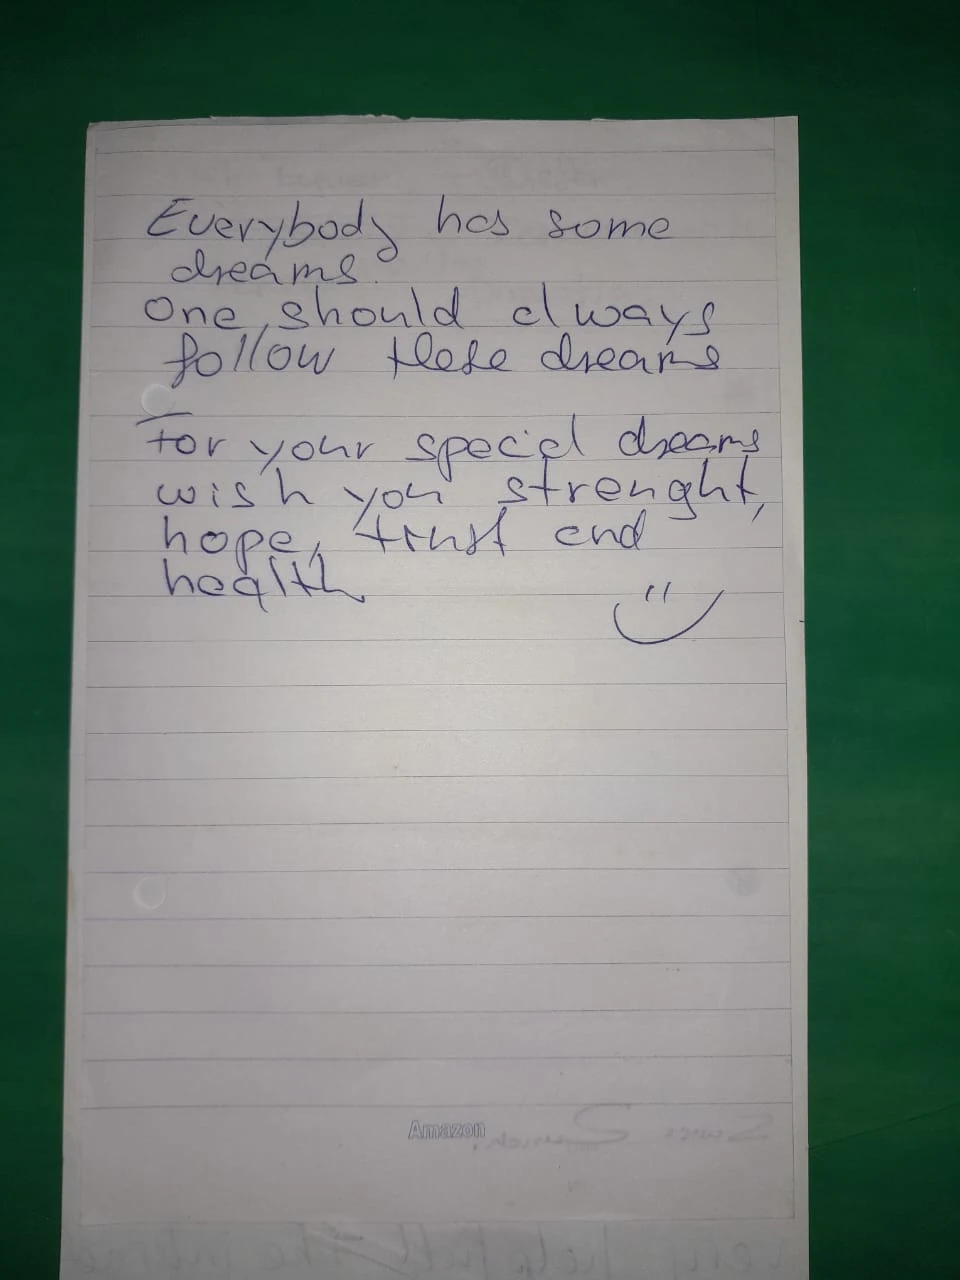 Everybody has some
dreams.
One should always
follow these dreams
For your special dreams
wish you strenght,
hope, trust and
health
Amazon